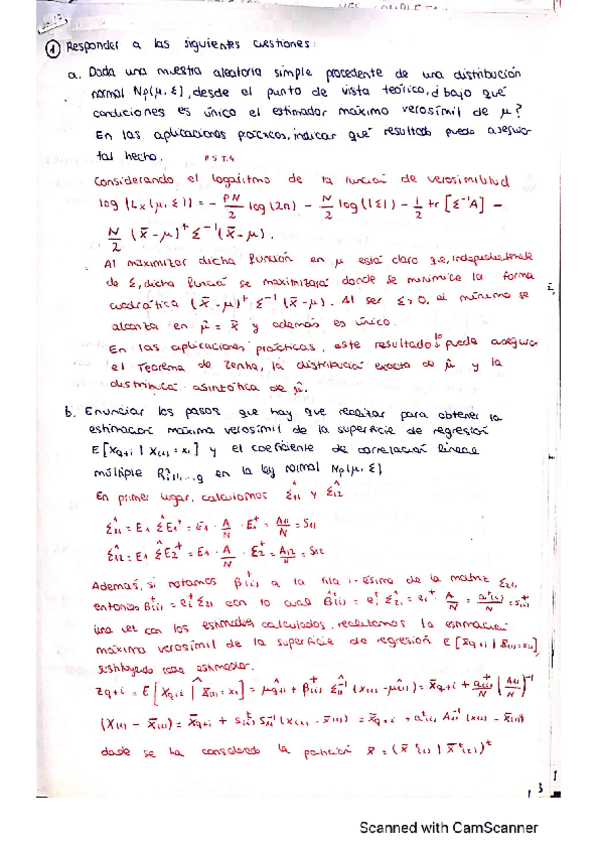 ① Responder a las siguientes cuestiones:
a. Dada una muestra aleatoria simple procedente de una distribución
normal Np(μ, Σ), desde el punto de vista teórico, ¿bajo qué
condiciones es único el estimador máximo verosímil de μ?
En las aplicaciones prácticas, indicar qué resultado puede asegurar
tal hecho.
Considerando el logaritmo de la función de verosimilitud
log (Lx (μ, Σ)) = - PN/2 log (2π) - N/2 log (|Σ|) - 1/2 tr [Σ⁻¹A] -
N/2 (x̄-μ)ᵗ Σ⁻¹ (x̄-μ).
Al maximizar dicha función en μ está claro q.e, independientemente
de Σ, dicha función se maximizará donde se minimice la forma
cuadrática (x̄-μ)ᵗ Σ⁻¹ (x̄-μ). Al ser Σ>0, el mínimo se
alcanza en μ̂ = x̄ y además es único.
En las aplicaciones prácticas, este resultado lo puede asegurar
el Teorema de Zehna, la distribución exacta de μ̂ y la
distribución asintótica de μ̂.
b. Enunciar los pasos que hay que realizar para obtener la
estimación máxima verosímil de la superficie de regresión
E[Xq+i | X(1) = x1] y el coeficiente de correlación lineal
múltiple R²i·1,...,q en la ley normal Np(μ, Σ)
En primer lugar, calculamos Σ̂11 y Σ̂12
Σ̂11 = E1 Σ̂ E1ᵗ = E1 · A/N · E1ᵗ = A11/N = S11
Σ̂12 = E1 Σ̂ E2ᵗ = E1 · A/N · E2ᵗ = A12/N = S12
Además, si notamos β(i) a la fila i-ésima de la matriz Σ21,
entonces
una vez con los estimadores calculados, realizamos la estimación
máxima verosímil de la superficie de regresión E[Xq+i | X(1)=x1]
sustituyendo cada estimador.
donde se ha considerado la partición x̄ = (x̄ᵗ(1) | x̄ᵗ(2))ᵗ
Scanned with CamScanner